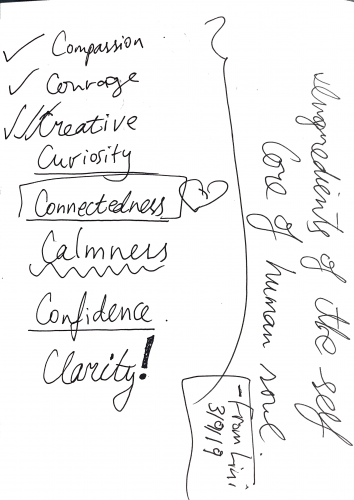 Compassion
Courage
Creative
Curiosity
Connectedness
Calmness
Confidence.
Clarity!
Ingredients of the self
Core of human soul.
- From Lini
3/9/19